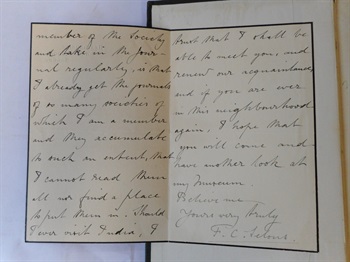 member of the Society
and take in the Jour-
nal regularly, is that
I already get the journals
of so many societies of
which I am a member
and they accumulate
to such an extent, that
I cannot read them
all nor find a place
to put them in. Should
I ever visit India, I
trust that I shall be
able to meet you, and
renew our acquaintance,
and if you are ever
in this neighbourhood
again, I hope that
you will come and
have another look at
my Museum.
Believe me
Yours very truly
F. C. Selous.